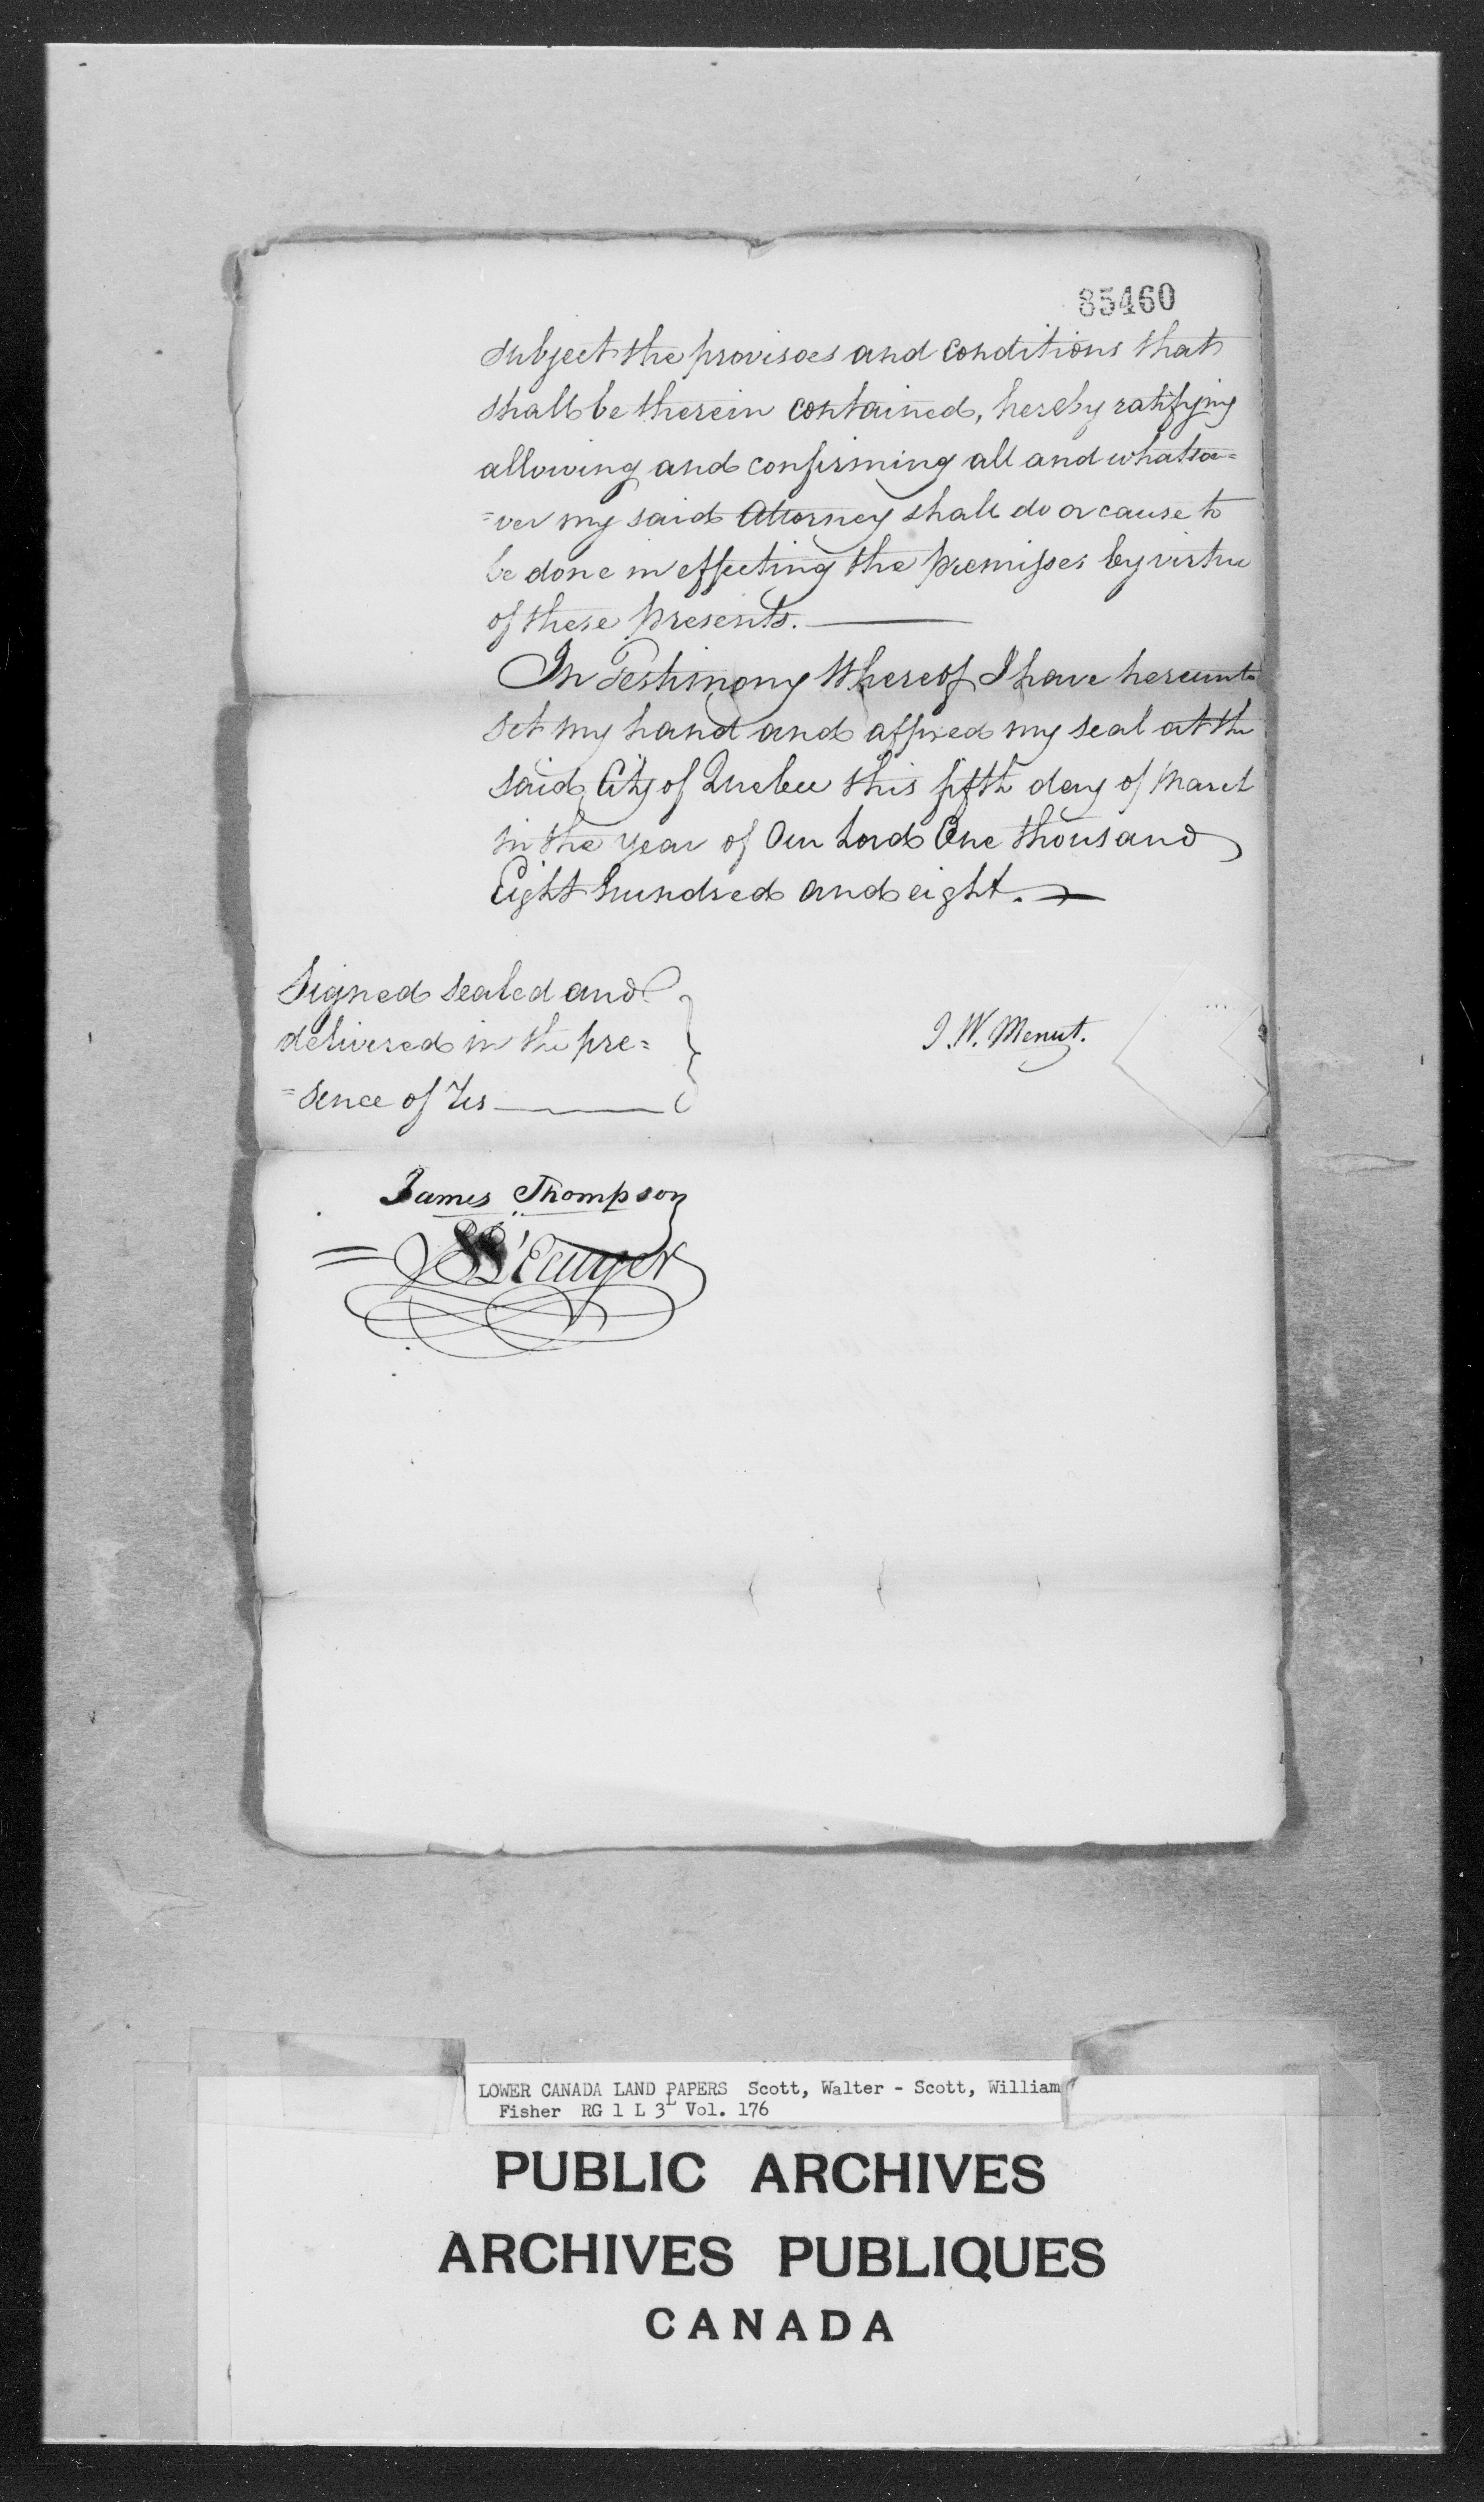 85460
subject the provisoes and conditions that
shall be therein contained, hereby ratifying
allowing and confirming all and whatsoe=
=ver my said Attorney shall do or cause to
be done in effecting the premisses by virtue
of these presents.
In Testimony Whereof I have hereunto
set my hand and affixed my seal at the
said City of Quebec this fifth day of March
in the year of Our Lord One thousand
Eight hundred and eight.
Signed sealed and
delivered in the pre=
=sence of Us
J. W. Menut.
James Thompson
LOWER CANADA LAND PAPERS Scott, Walter - Scott, William
Fisher RG 1 L 3L Vol. 176
PUBLIC ARCHIVES
ARCHIVES PUBLIQUES
CANADA